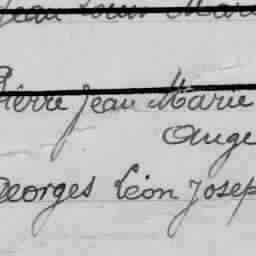 Jean Louis Marie
Pierre Jean Marie
Ange
Georges Léon Josep